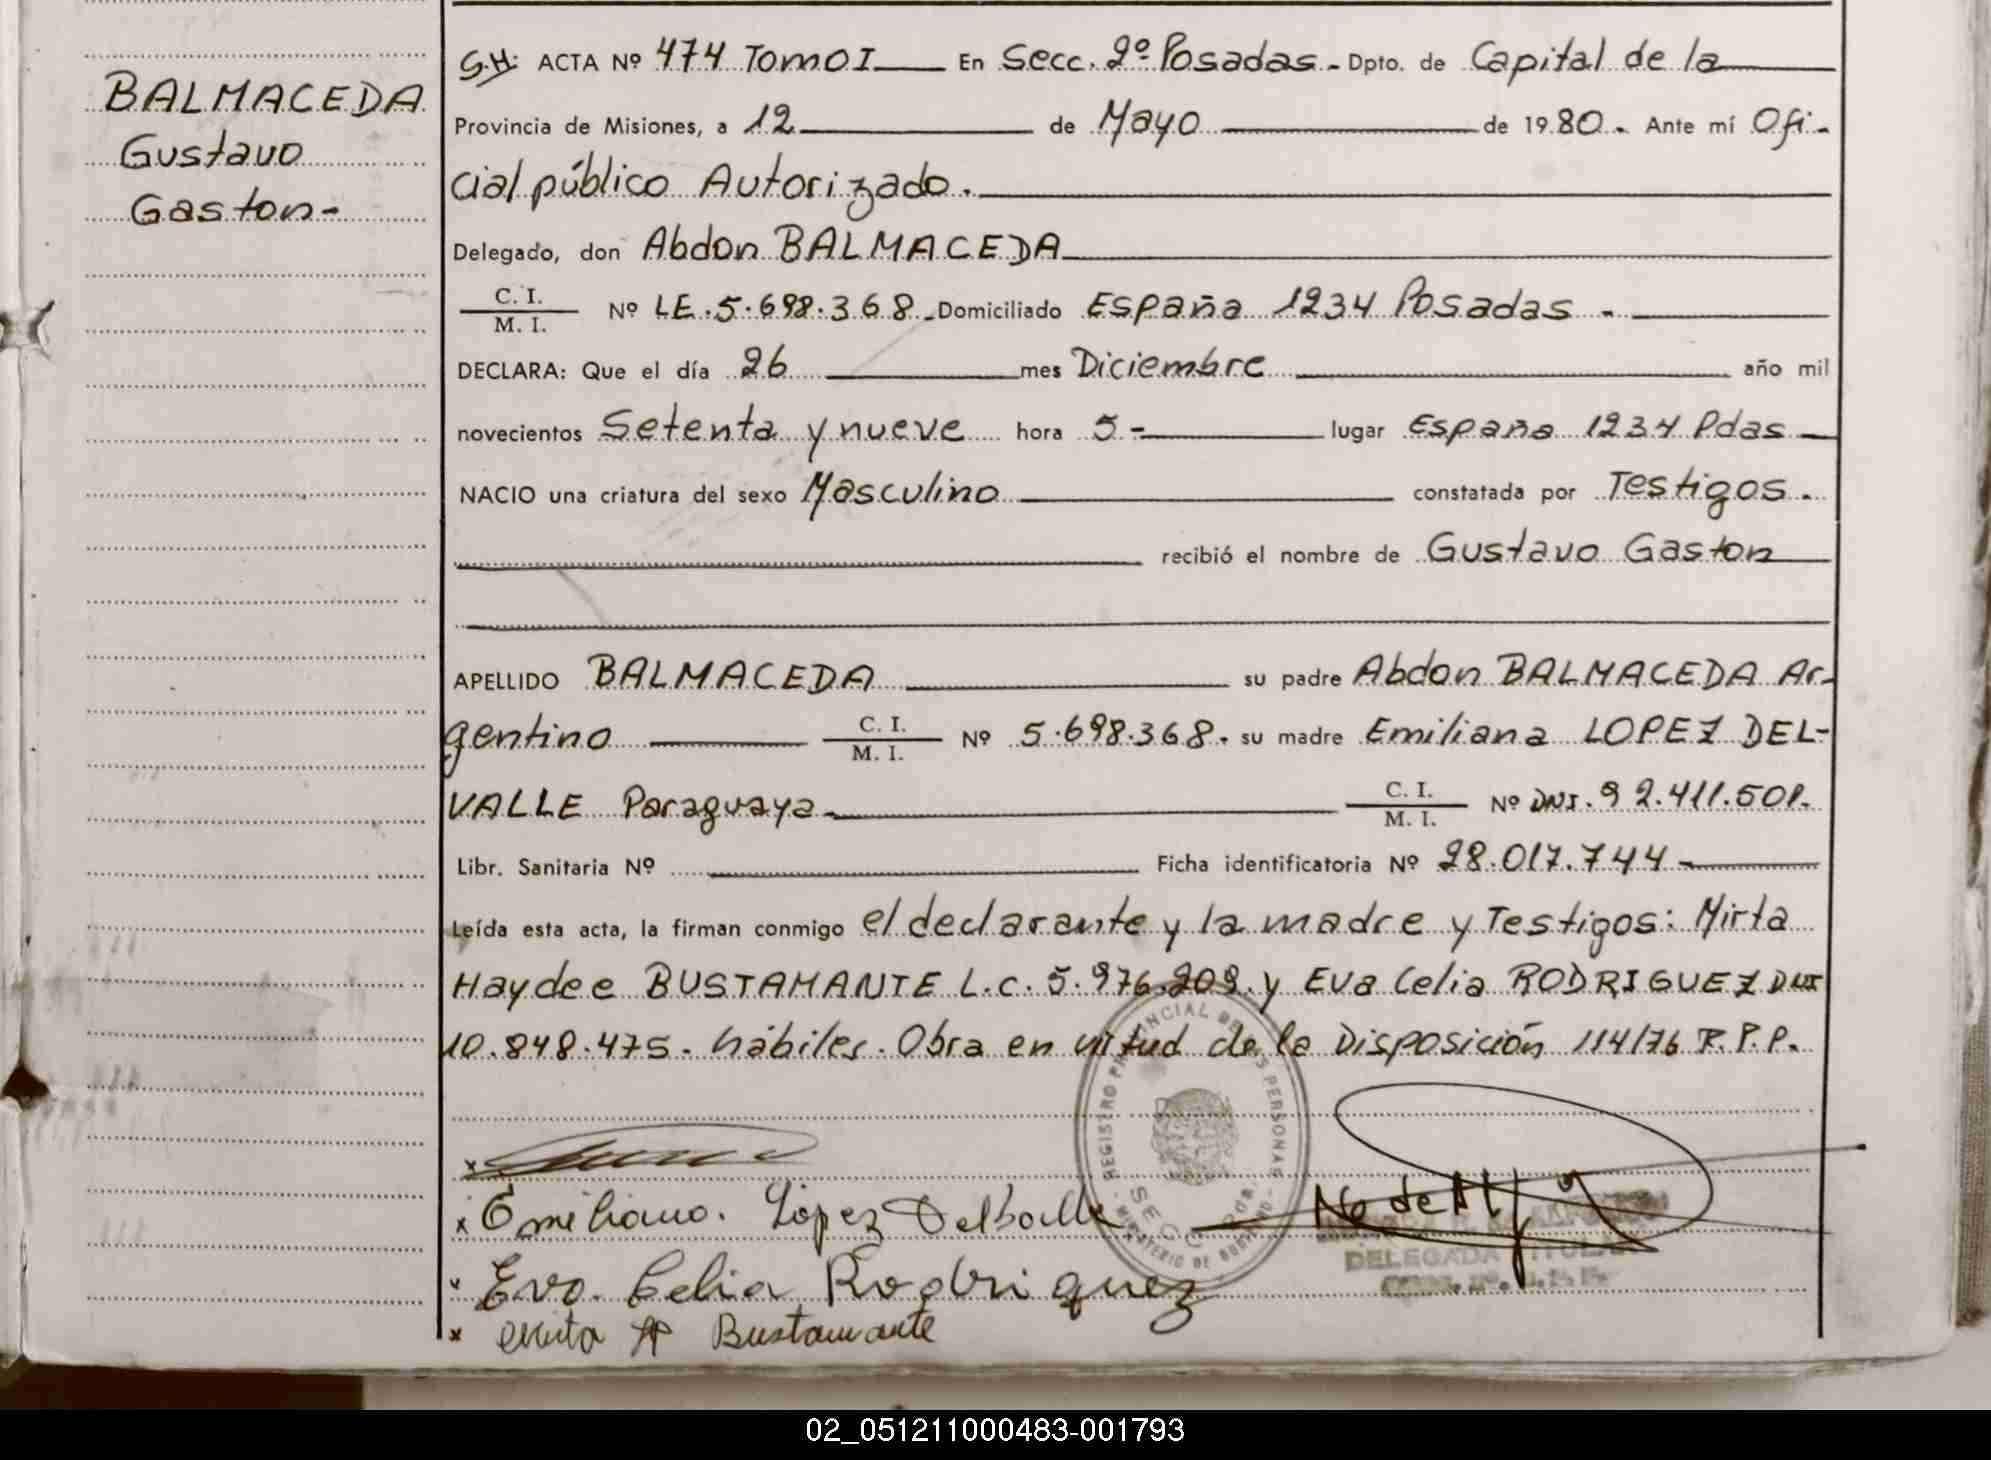 BALMACEDA
Gustavo
Gaston-
S.H. ACTA Nº 474 Tomo I En Secc. 2º Posadas.- Dpto. de Capital de la
Provincia de Misiones, a 12 de Mayo de 1980.- Ante mí Ofi-
cial público Autorizado.
Delegado, don Abdon BALMACEDA
C. I.
M. I. Nº LE.5.698.368.- Domiciliado España 1234 Posadas.-
DECLARA: Que el día 26 mes Diciembre año mil
novecientos Setenta y nueve hora 5- lugar España 1234 Pdas
NACIO una criatura del sexo Masculino constatada por Testigos.
recibió el nombre de Gustavo Gaston
APELLIDO BALMACEDA su padre Abdon BALMACEDA Ar-
gentino C. I.
M. I. Nº 5.698.368. su madre Emiliana LOPEZ DEL-
VALLE Paraguaya C. I.
M. I. Nº DNI. 92.411.501.
Libr. Sanitaria Nº Ficha identificatoria Nº 28.017.744
Leída esta acta, la firman conmigo el declarante y la madre y Testigos: Mirta
Haydee BUSTAMANTE L.C. 5.976.209. y Eva Celia RODRIGUEZ DNI
10.848.475. hábiles. Obra en virtud de la Disposición 114/76 R.P.P.
REGISTRO PROVINCIAL DE LAS PERSONAS
MINISTERIO DE GOBIERNO
x Emiliana. López Delballe
x Eva. Celia Rodriquez
x H Bustamante
DELEGADA TITULAR
02_051211000483-001793